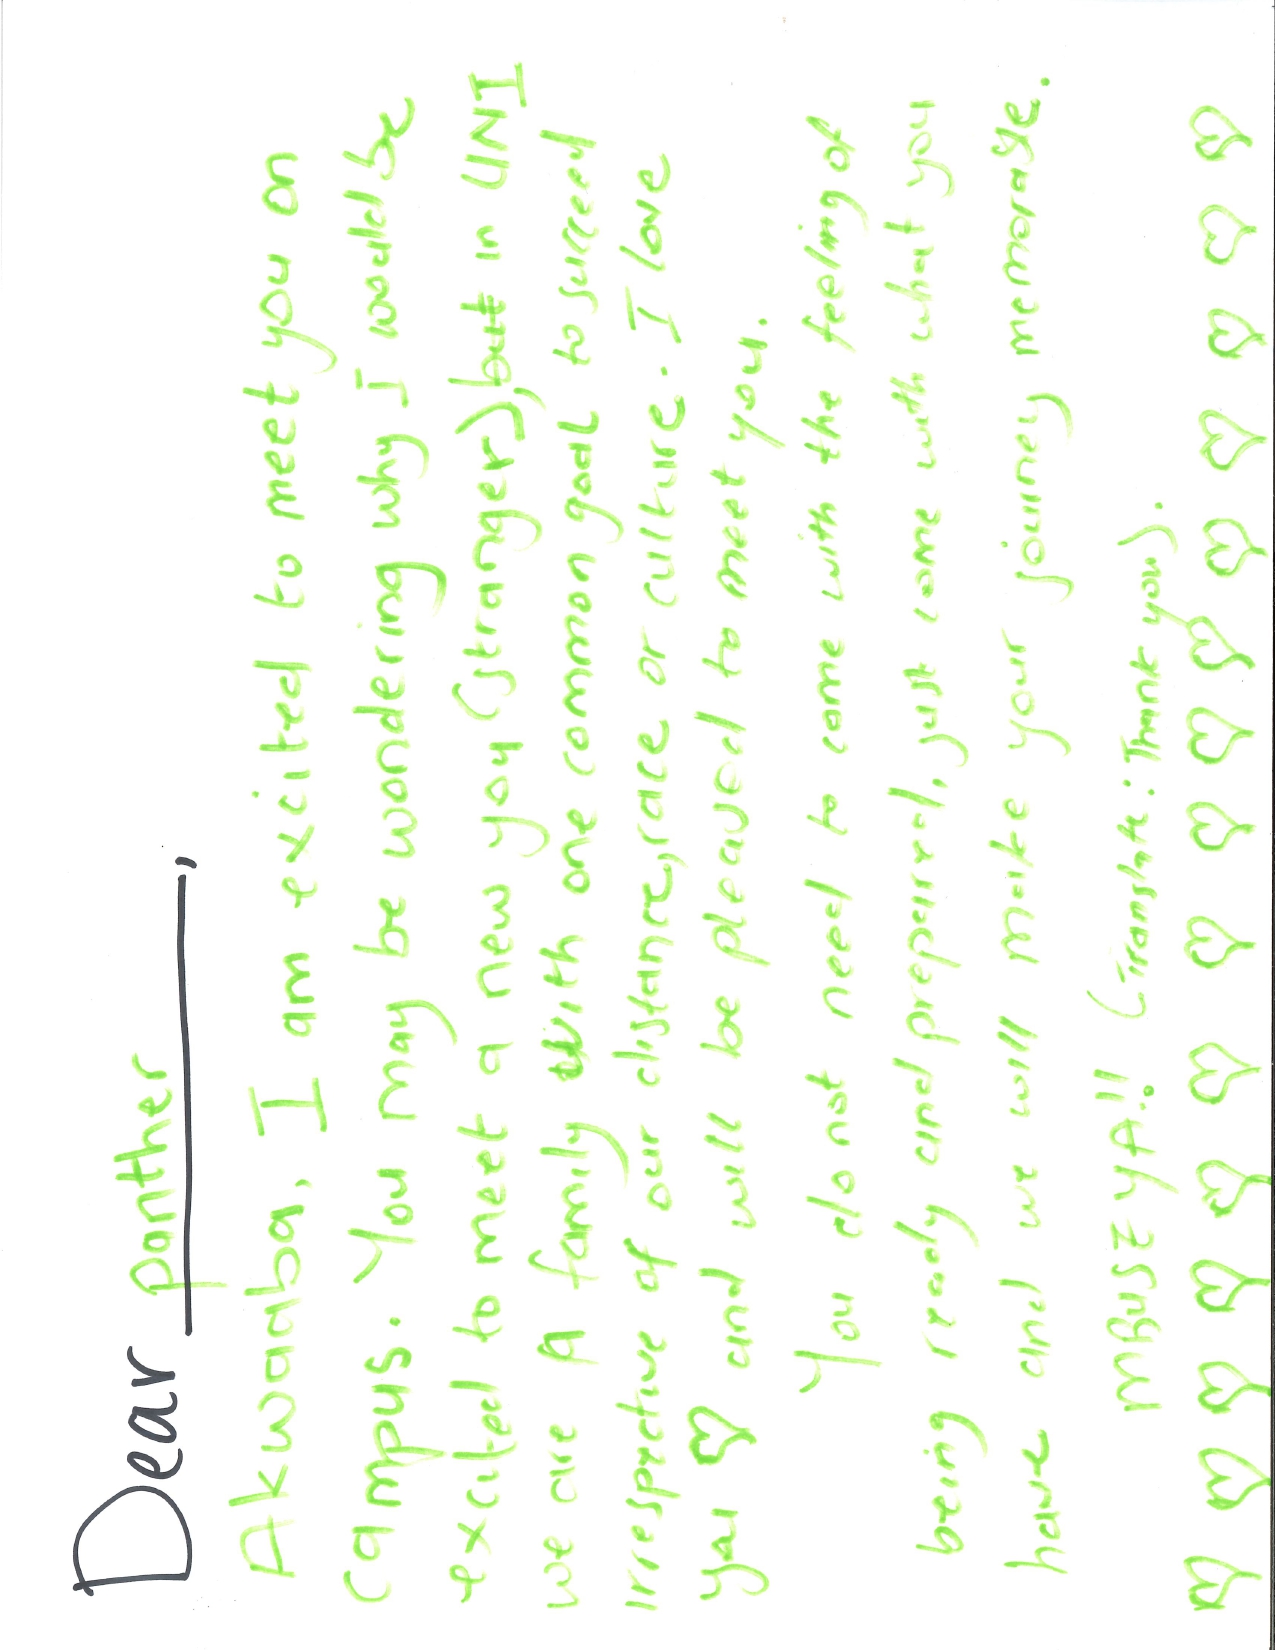 Dear panther,
Akwaaba, I am excited to meet you on
campus. You may be wondering why I would be
excited to meet a new you (stranger), but in UNI
we are A family with one common goal to succeed
irrespective of our distance, race or culture. I love
you ♡ and will be pleased to meet you.
You do not need to come with the feeling of
being ready and prepared, just come with what you
have and we will make your journey memorable.
MBUSE YA!! (Translate: Thank you).